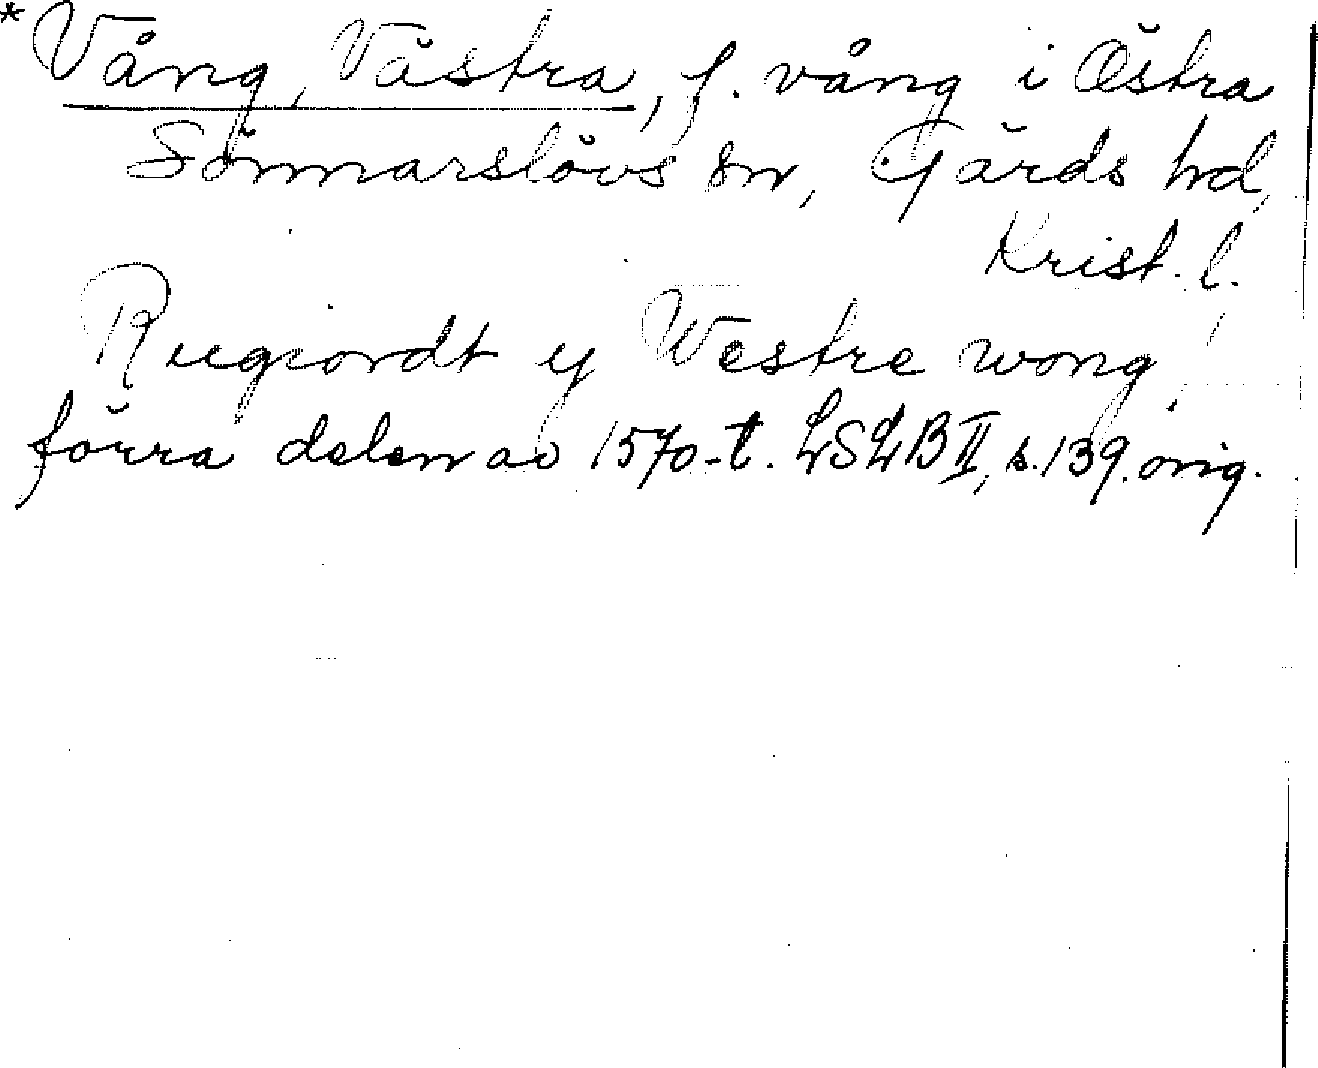 *Vång, Västra, f. vång i Östra
Sönnarslövs sn, Gärds hd,
Krist. l.
Rugiordt y Westre wong,
förra delen av 1570-t. LSLB II, s. 139. orig.